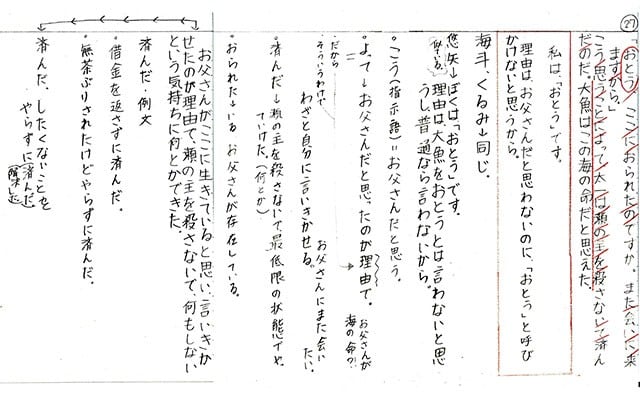 ㉗
「おとう、ここにおられたのですか。また会いに来
ますから。」
こう思うことによって、太一は瀬の主を殺さないで済ん
だのだ。大魚はこの海の命だと思えた。
私は、「おとう」です。
理由はお父さんだと思わないのに、「おとう」と呼び
かけないと思うから。
海斗、くるみ→同じ。
悠矢→ぼくは「おとう」です。
理由は、大魚をおとうとは言わないと思
うし、普通なら言わないから。
・こう(指示語)=お父さんだと思う。
・よって→お父さんだと思ったのが理由で。
だから
そういうわけで
お父さんが
海の命?!
わざと自分に言いきかせる。
お父さんにまた会い
たい。
・済んだ→瀬の主を殺さないで、最低限の状態でや
っていけた。(何とか)
・おられた→いる お父さんが存在している。
お父さんが、ここに生きていると思い、言いきか
せたのが理由で、瀬の主を殺さないで、何もしない
という気持ちに何とかできた。
済んだ・例文
・借金を返さずに済んだ。
・無茶ぶりされたけどやらずに済んだ。
済んだ、したくないことを
やらずに(済んだ)